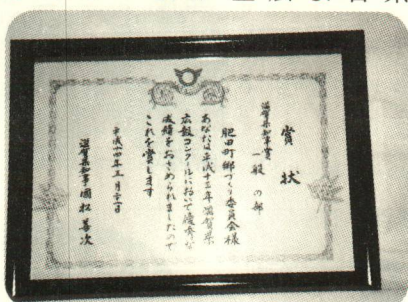 賞状
滋賀県知事賞
一般の部
肥田町郷づくり委員会様
あなたは平成十三年滋賀県
広報コンクールにおいて優秀な
成績をおさめられましたので
これを賞します
平成十四年三月
滋賀県知事 國松善次